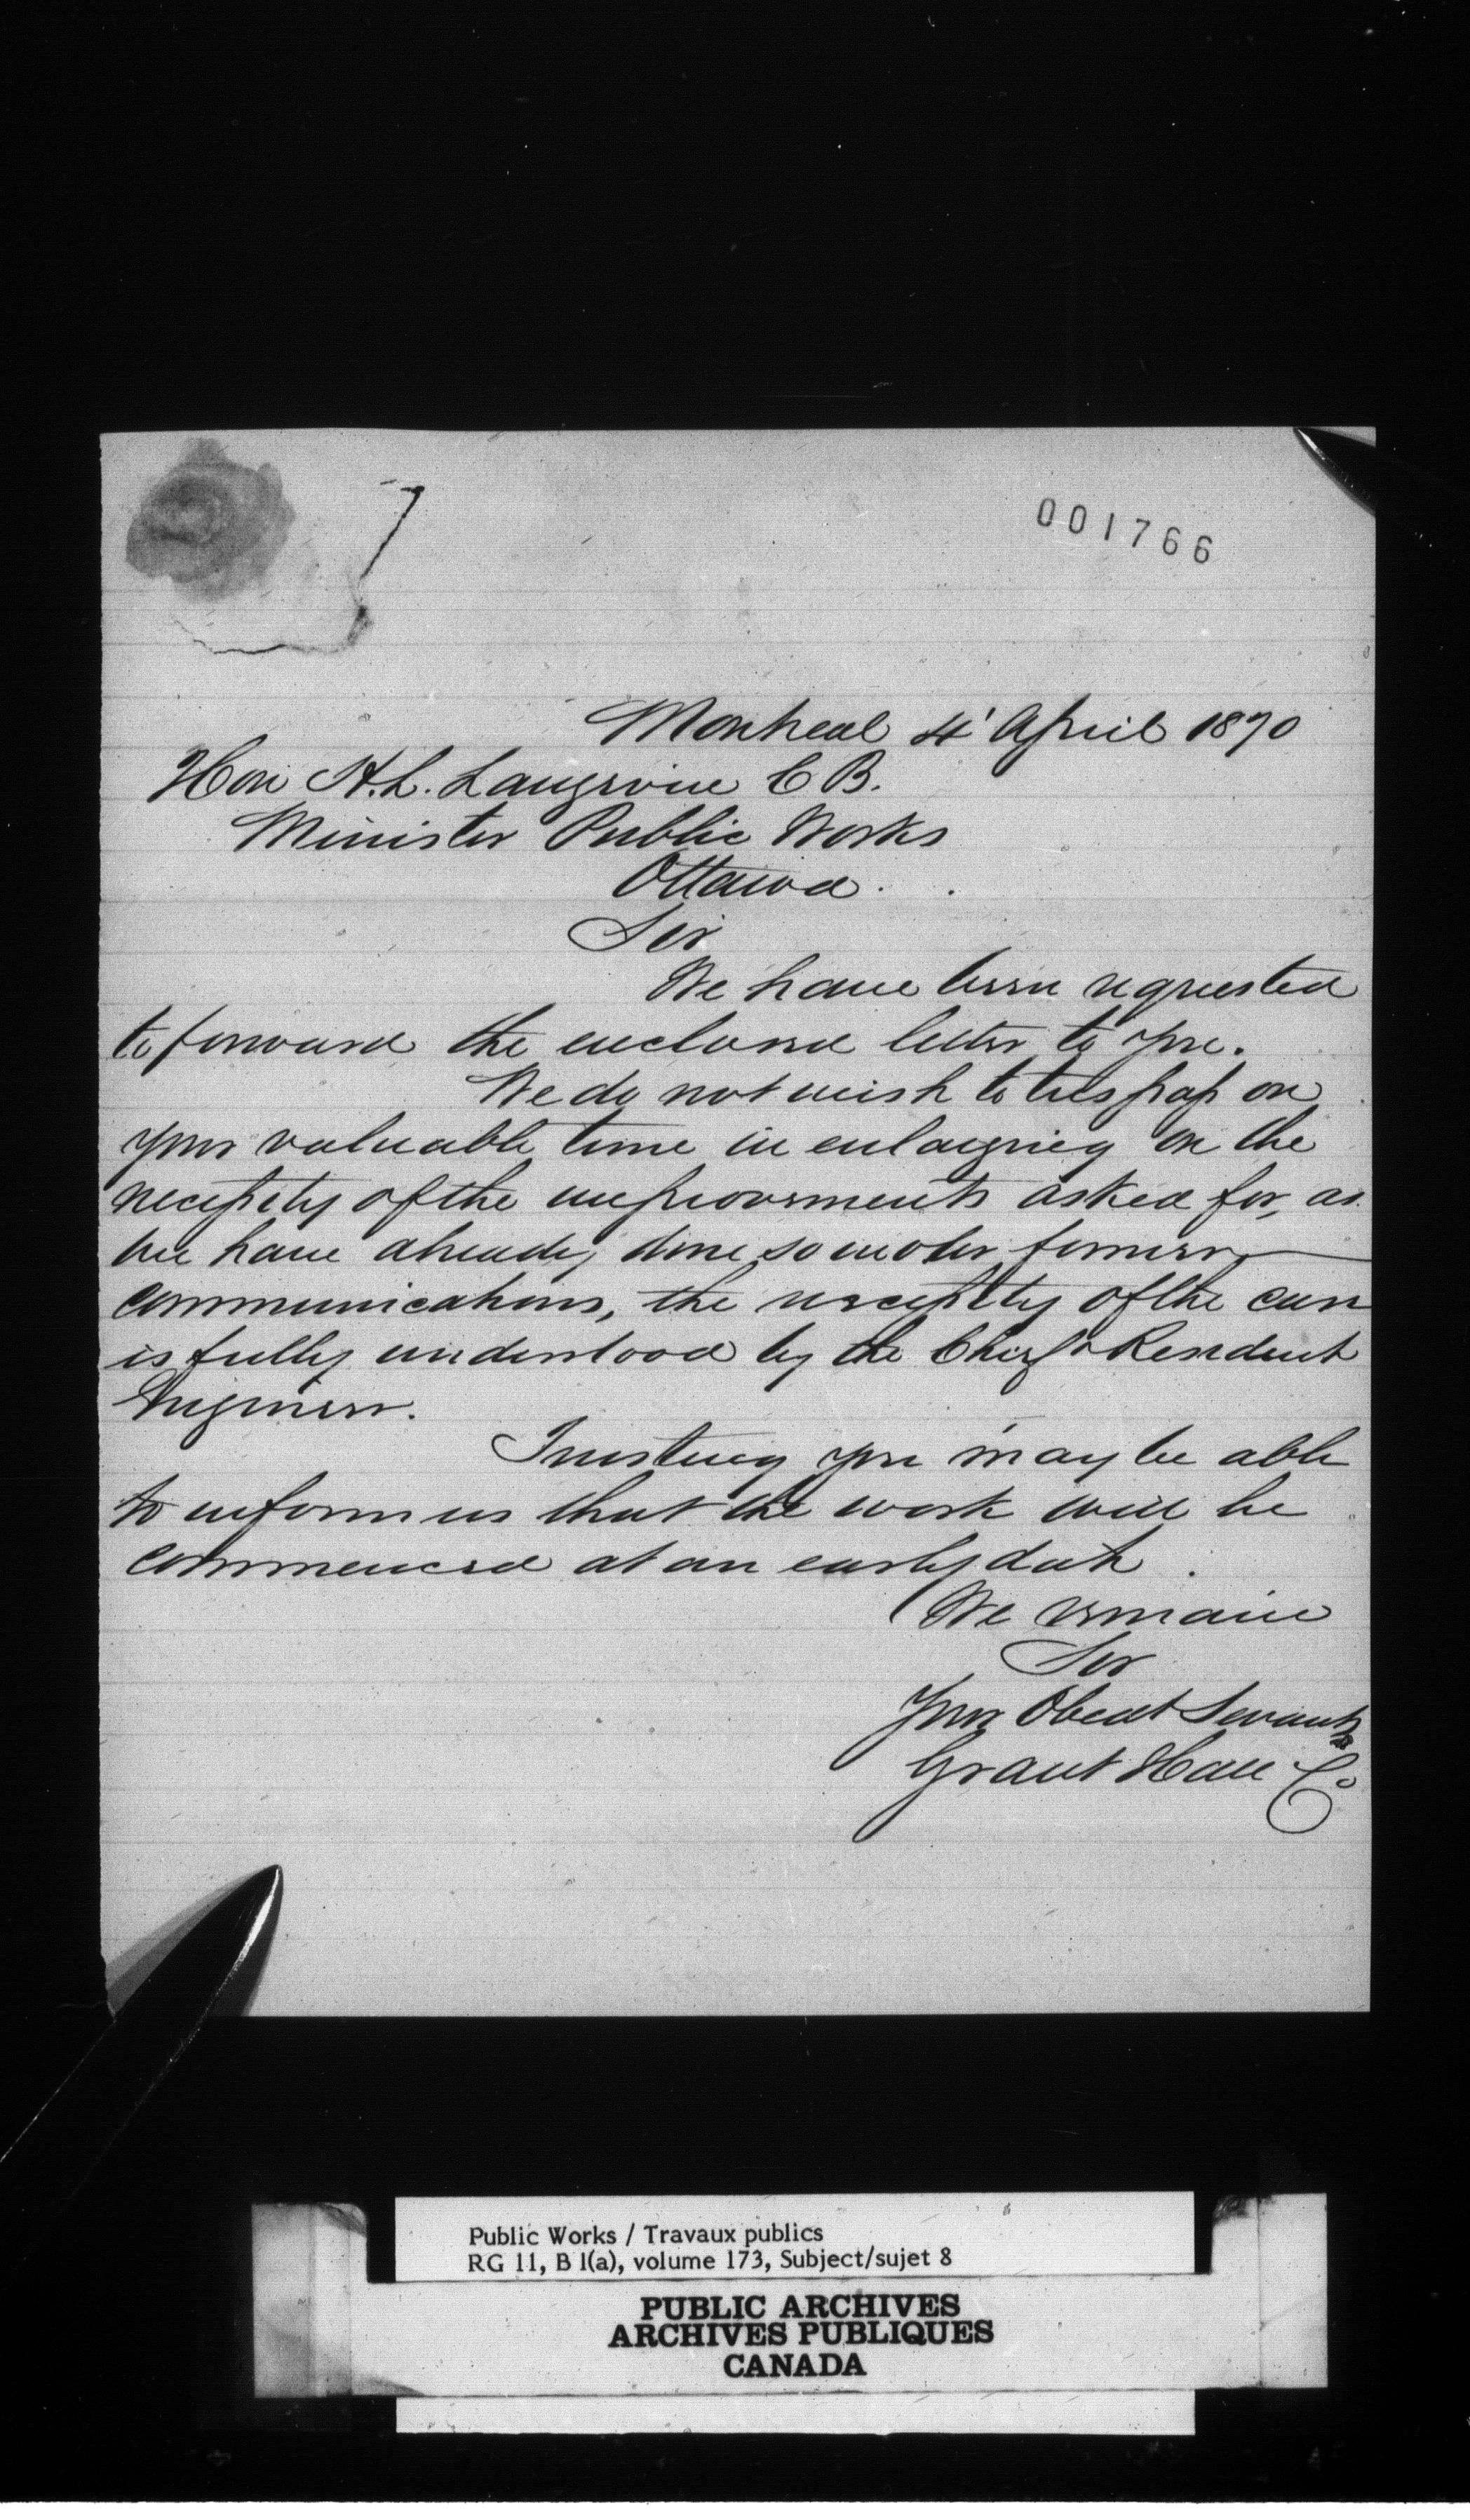 001766
Montreal 4' April 1870
Hon H.L. Langevin C B.
Minister Public Works
Ottawa.
Sir
We have been requested
to forward the enclosed letter to you.
We do not wish to trespass on
your valuable time in enlarging on the
necessity of the improvements asked for, as
we have already done so in our former
communications, the necessity of the case
is fully understood by the Chief & Resident
Engineer.
Trusting you may be able
to inform us that the work will be
commenced at an early date.
We remain
Sir
Your Obedt Servants
Grant Hall Co
Public Works / Travaux publics
RG 11, B 1(a), volume 173, Subject/sujet 8
PUBLIC ARCHIVES
ARCHIVES PUBLIQUES
CANADA